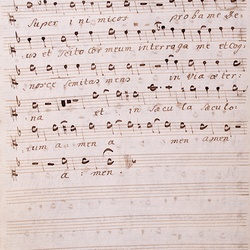 super inimicos proba me De
us et scito cor meum interroga me et cog
nosce semitas meas in via æter
na et in sæcula sæculo
rum amen amen amen
amen